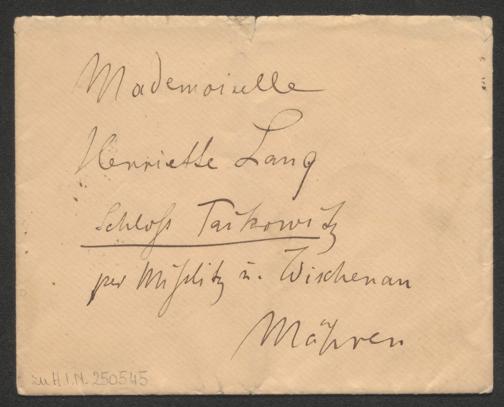 Mademoiselle
Henriette Lang
Schloß Taikowitz
per Mißlitz u. Wischenau
Mähren
zu H.I.N. 250545